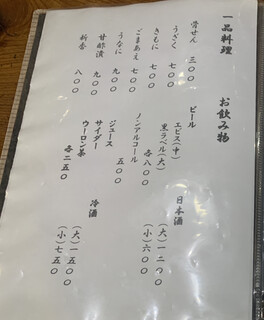 一品料理
骨せん 三〇〇
うざく 七〇〇
きもに 七〇〇
ごまあえ 七〇〇
うなに 九〇〇
甘酢漬 九〇〇
新香 八〇〇
お飲み物
ビール
エビス(中)
黒ラベル(大)
各八〇〇
ノンアルコール
五〇〇
ジュース
サイダー
ウーロン茶
各二五〇
日本酒
(大)一二〇〇
(小)六〇〇
冷酒
(大)一五〇〇
(小)七五〇